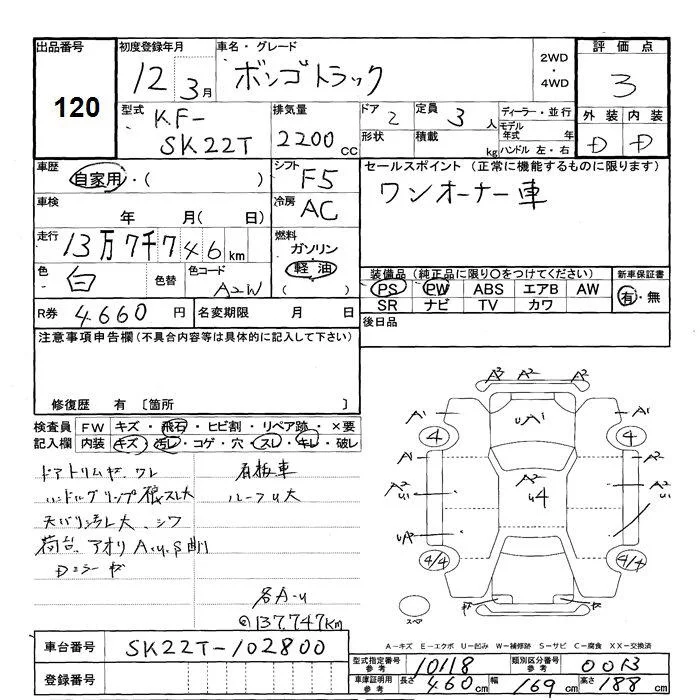 出品番号
120
初度登録年月
12 3月
車名・グレード
ボンゴトラック
2WD
・
4WD
評価点
3
外装 内装
D D
型式
KF-
SK22T
排気量
2200 cc
ドア 2
形状
定員 3 人
積載 kg
ディーラー・並行
モデル年式 年
ハンドル 左・右
車歴
自家用・( )
シフト F5
セールスポイント (正常に機能するものに限ります)
ワンオーナー車
車検
年 月( 日)
冷房 AC
走行
13万7千746 km
燃料
ガソリン
軽油
( )
色 白 色替
色コード A2W
装備品 (純正品に限り○をつけてください)
新車保証書
PS PW ABS エアB AW
SR ナビ TV カワ
有・無
R券 4,660 円
名変期限 月 日
後日品
注意事項申告欄(不具合内容等は具体的に記入して下さい)
修復歴 有 〔箇所
検査員
記入欄
FW キズ・飛石・ヒビ割・リペア跡・×要
内装 キズ・汚レ・コゲ・穴・スレ・キレ・破レ
ドアトリムヤ、ワレ
看板車
ハンドルグリップ根スレ大
ルーフU大
天バリ汚レ大、シワ
荷台、アオリ A.u.S
各A-u
137,747Km
車台番号 SK22T-102800
登録番号
A3 A2 A2
A1 uA1 A1
4 4
A1 A1
A2 u1 A2 u4 A2 u1
uA uA1
4/4 4/4
スペア
A-キズ E-エクボ U-凹み W-補修跡 S-サビ C-腐食 XX-交換済
型式指定番号 参考 10118
類別区分番号 参考 0013
車庫証明用 参考
長さ 460 cm
幅 169 cm
高さ 188 cm